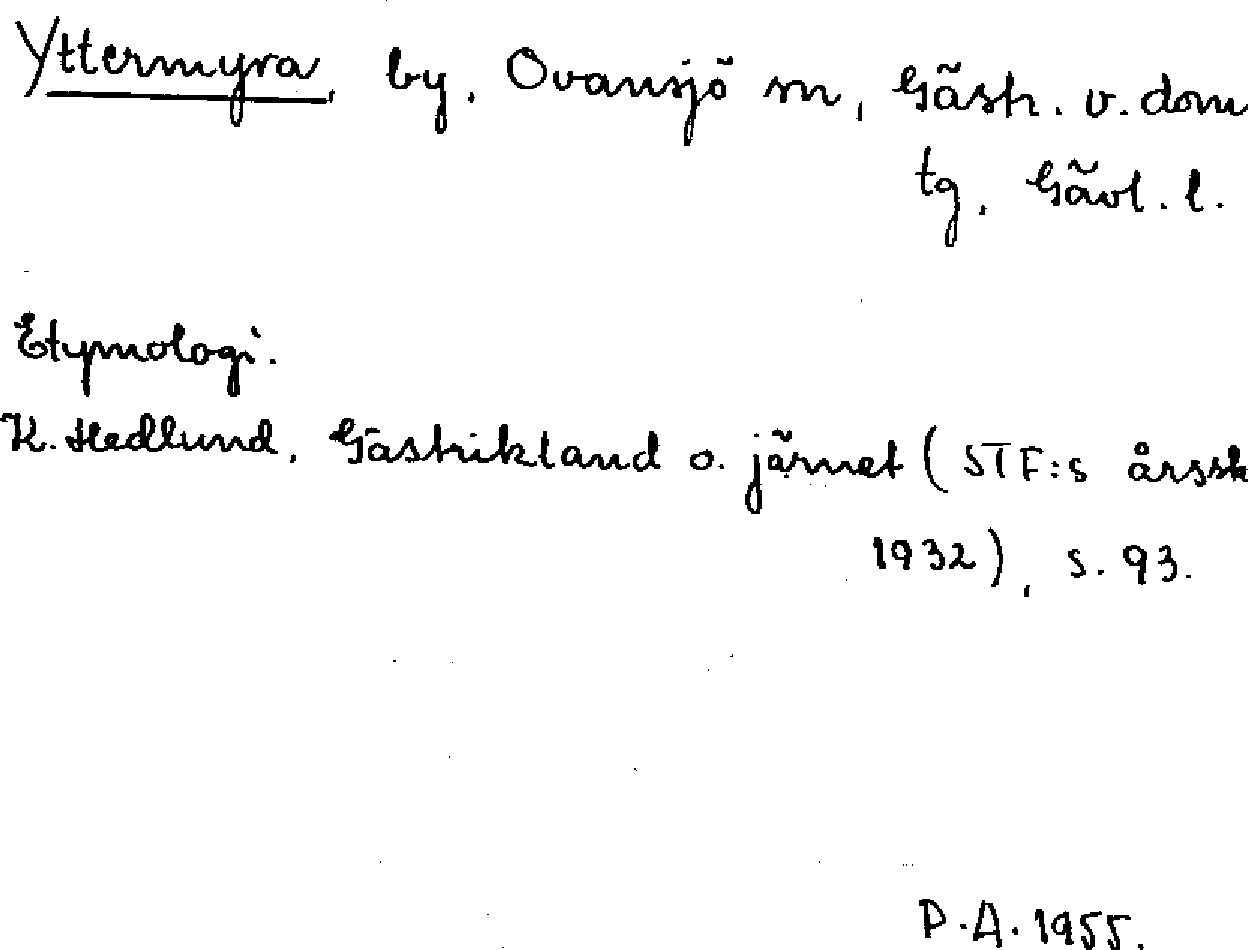 Yttermyra, by, Ovansjö sn, Gästr. v. dom
tg, Gävl. l.
Etymologi.
K. Hedlund, Gästrikland o. järnet (STF:s årssk
1932), s. 93.
P.A. 1955.